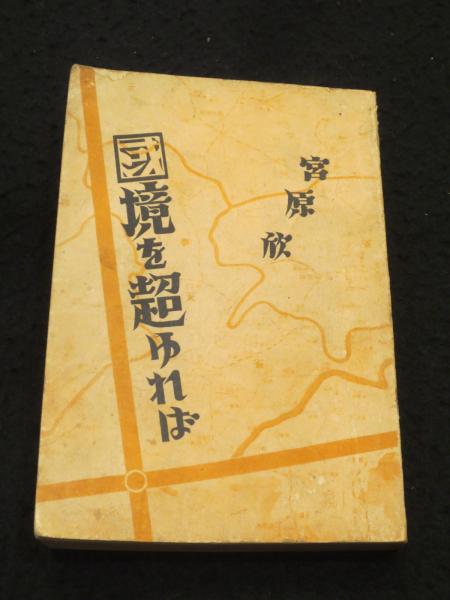 宮原欣
國境を超ゆれば